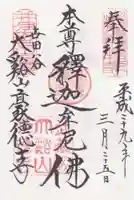 奉拝
平成二十九年
三月二十五日
本尊釋迦牟尼佛
世田谷
大谿山豪徳寺